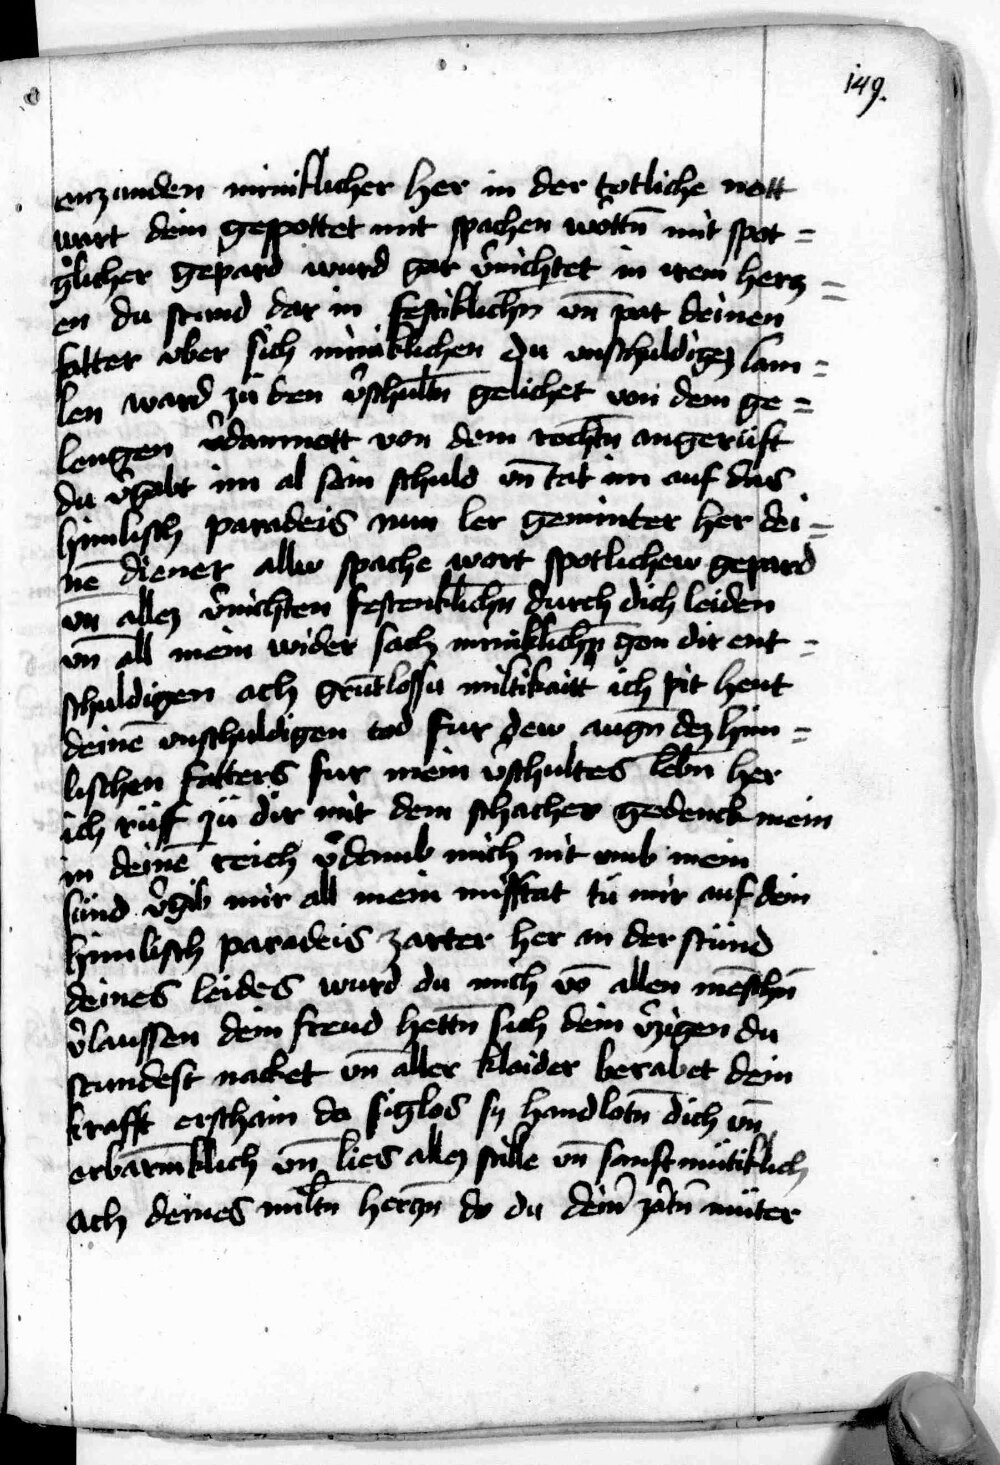 149.
enzünden minniklicher her in der totliche nott
wart dein gespottet mit spachen wöttn̄ mit spot =
glicher gepard wurd gar v̂nichtet in irem hercz =
en du stand dar in festiklichn̄ vn̄ pat deinen
fatter vber sich miniklichen du vnschuldigez lam =
len ward zü den v̂schultn̄ gelichet von dem ge =
lengen v̂damnott von dem rechtn̄ angerüft
du v̂gabt im al sein schuld vn̄ tat im auf das
himlisch paradeis nun ler geminter her dei =
nē diener allw spache wort spotlichew gepard
vn̄ allez v̂nichten festenklichn̄ durch dich leiden
vn̄ all mein wider sach miniklichn̄ gen dir ent =
schuldigen ach grūtlossu miltikaitt ich pit heut
deinē vnschuldigen tod fur dew augn̄ dez him =
lischen fatters fur mein v̂schultes lebn̄ her
ich rüff zü dir mit dem schacher gedenck mein
in deinē reich v̂damb mich nit vmb mein
sünd v̂gib mir all mein missttat tü mir auf dein
himlisch paradeis zarter her in der stünd
deines leides wurd du mich vō allen mēschn̄
v̂laussen dein freud hettn̄ sich dein v̂zigen du
stundest nacket vn̄ aller klaider berabet dein
krafft erschain do siglos sy handlotn̄ dich vn̄
erbārmklich vn̄ lies allez stille vn̄ sanftmütiklich
ach deines miltn̄ herczn̄ do du dein̂ zartn̄ müter